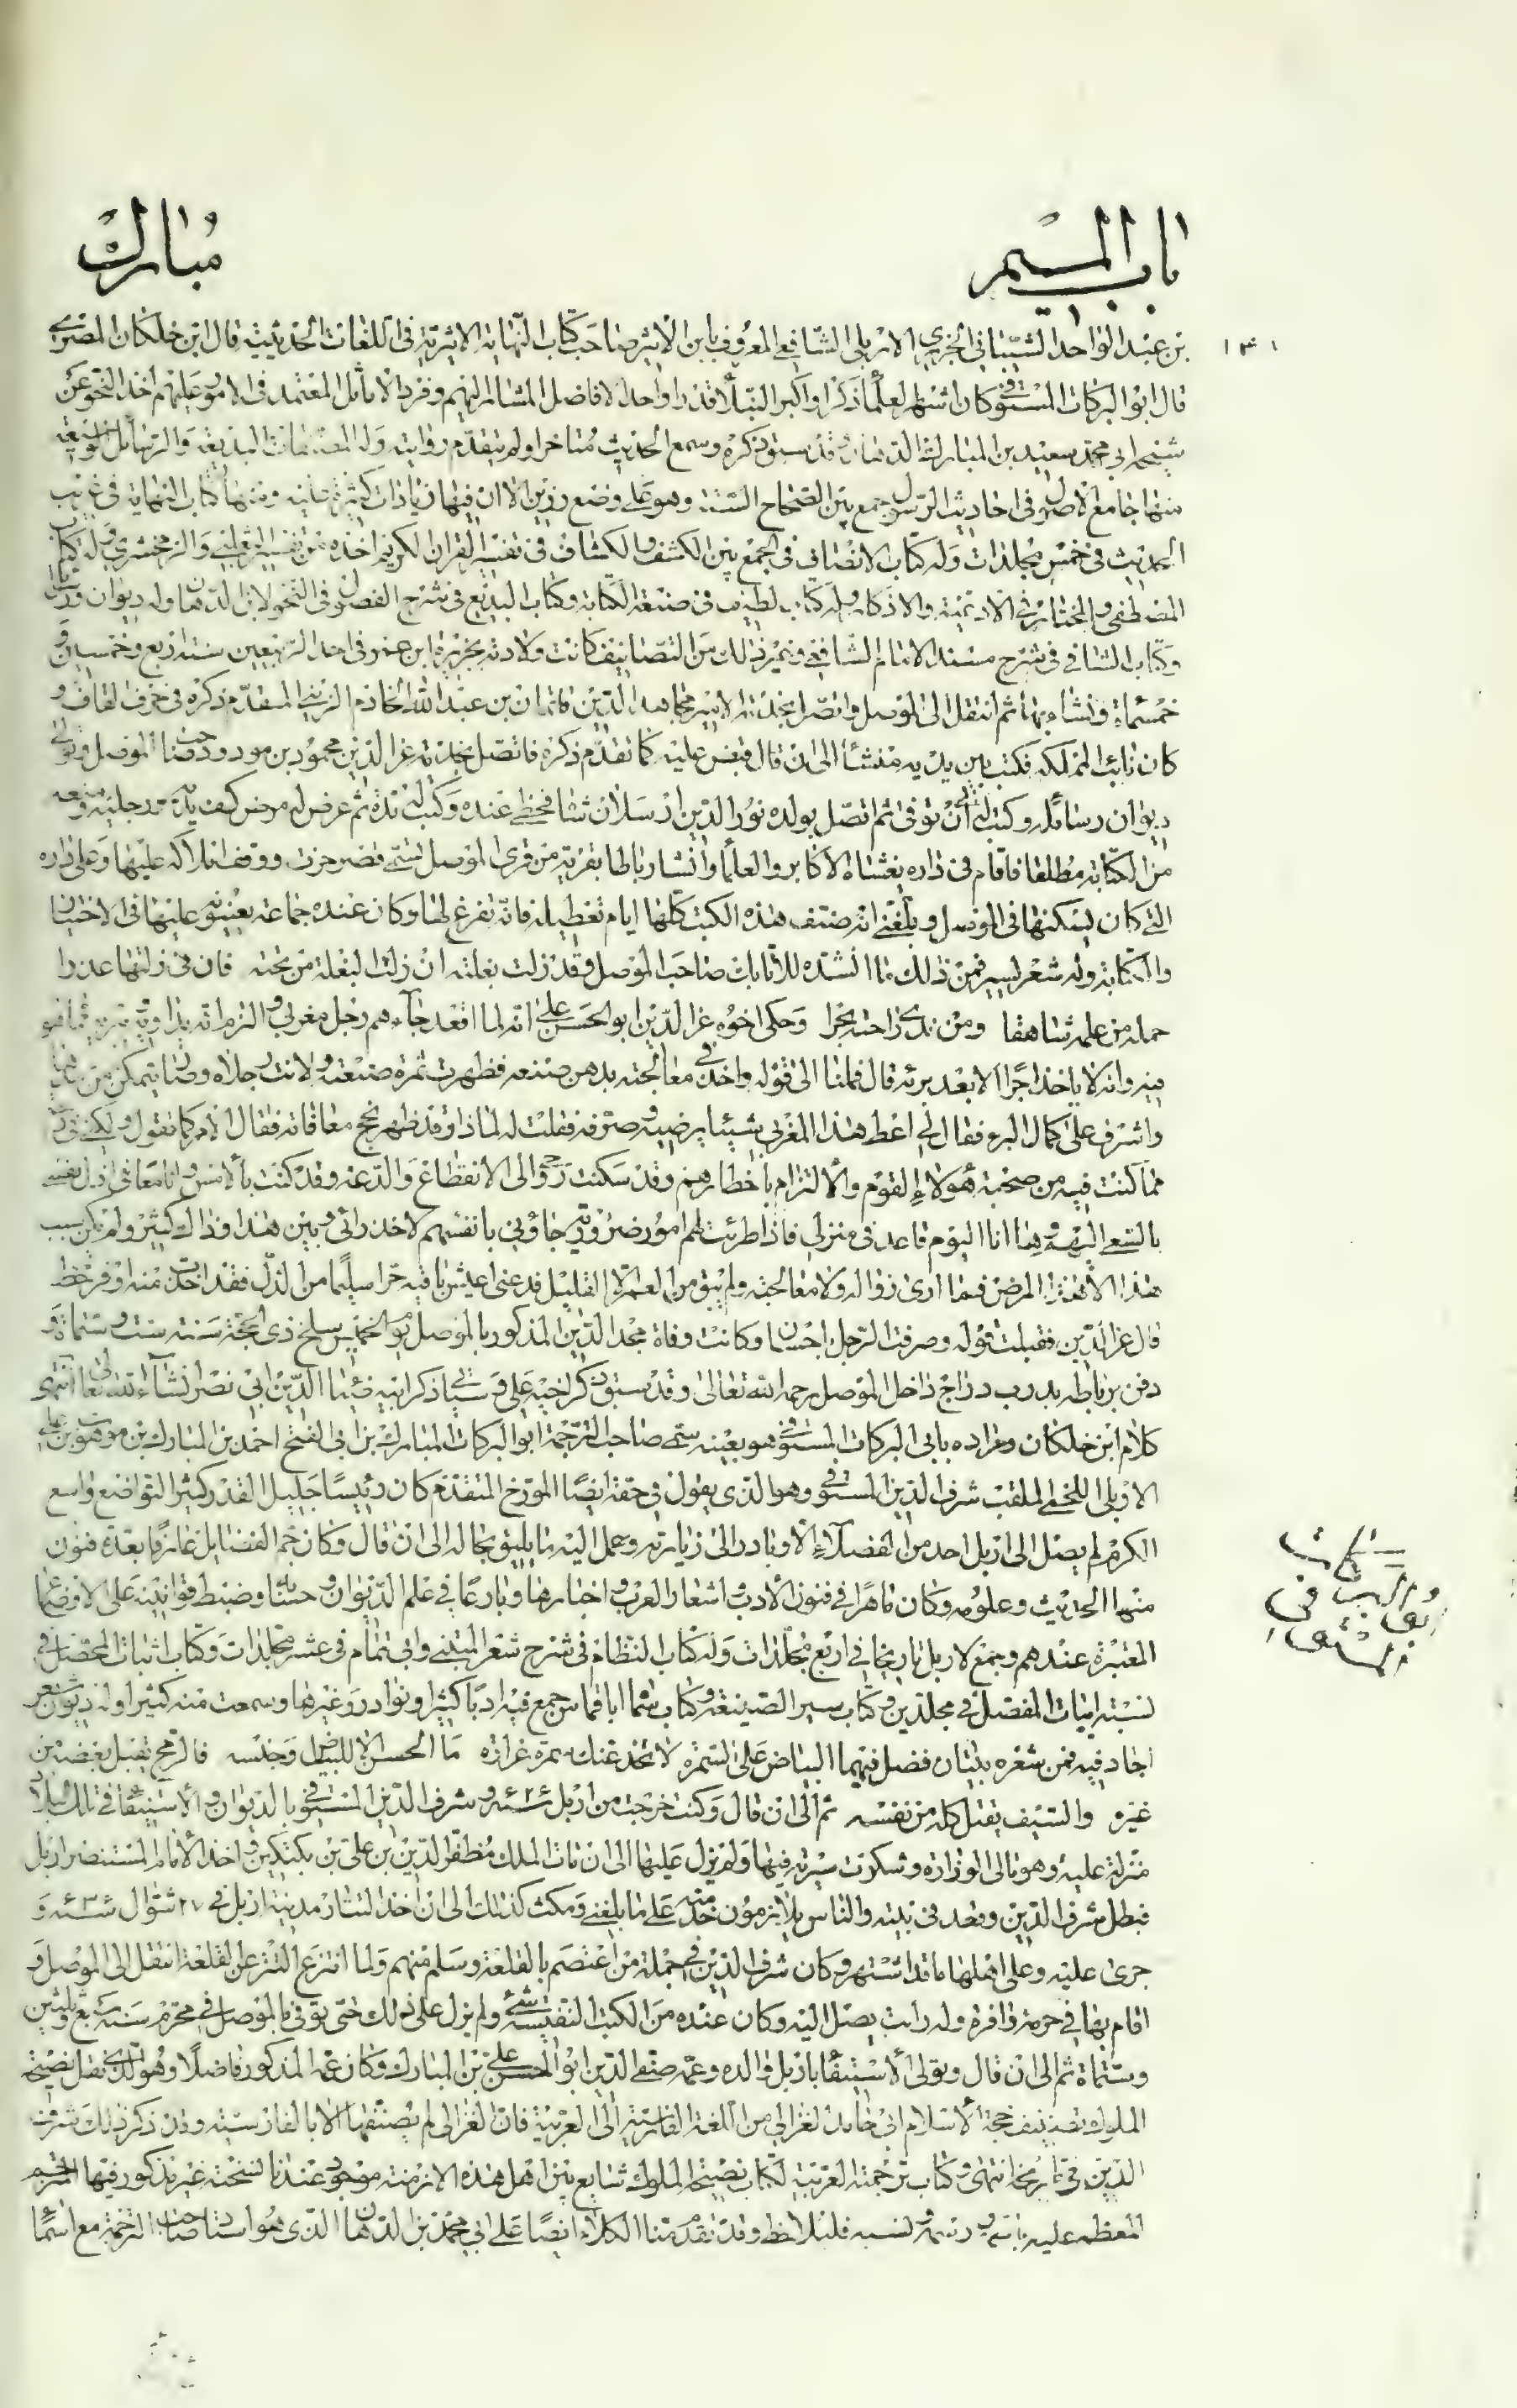 باب الميم
مبارك
١٣١
بن عبد الواحد الشيباني الجزري الاربلي الشافعي المعروف بابن الاثير صاحب كتاب النهاية الاثيرية في اللغات الحديثية قال ابن خلكان المصري
قال ابو البركات المستوفي وكان اشهر العلماء ذكرا واكبر النبلاء قدرا واحد الافاضل المشار اليهم وفرد الاماثل المعتمد في الامور عليهم اخذ النحو عن
شيخه ابي محمد سعيد بن المبارك الدهان وقد سبق ذكره وسمع الحديث متاخرا ولم يتقدم روايته وله المصنفات البديعة والرسائل الوسيعة
منها جامع الاصول في احاديث الرسول جمع بين الصحاح الستة وهو على وضع رزين الا ان فيها زيادات كثيرة عليه ومنها كتاب النهاية في غريب
الحديث في خمس مجلدات وله كتاب الانصاف في الجمع بين الكشف والكشاف في تفسير القران الكريم اخذه من تفسير الثعلبي والزمخشري وله كتاب
المصطفى والمختار في الادعية والاذكار وله كتاب لطيف في صنعة الكتابة وكتاب البديع في شرح الفصول في النحو لابن الدهان وله ديوان رسائل
وكتاب الشافي في شرح مسند الامام الشافعي وغير ذلك من التصانيف كانت ولادته بجزيرة ابن عمر في احد الربيعين سنة اربع واربعين و
خمسمائة ونشاء بها ثم انتقل الى الموصل واتصل بخدمة الامير مجاهد الدين قايماز بن عبد الله الخادم الزيني المتقدم ذكره في حرف القاف و
كان نائب المملكة فكتب بين يديه منشأ الى ان قال قبض عليه كما تقدم ذكره فاتصل بخدمة عز الدين مسعود بن مودود صاحب الموصل وتولى
ديوان رسائله وكتب له الى ان توفي ثم اتصل بولده نور الدين ارسلان شاه فحظي عنده وكتب له مدة ثم عرض له مرض كف يديه ورجليه ومنعه
من الكتابة مطلقا فاقام في داره يغشاه الاكابر والعلماء وانشا رباطا بقرية من قرى الموصل تسمى قصر حرب ووقف املاكه عليها وعلى داره
التي كان يسكنها في الموصل وبلغني انه صنف هذه الكتب كلها ايام تعطيله فانه تفرغ لها وكان عنده جماعة يعينونه عليها في الاختيار
والكتابة وله شعر يسير فمن ذلك ما انشده للاتابك صاحب الموصل وقد زلت بغلته ان زلت البغلة من تحته فان في زلتها عذرا
حملها من علمه شاهقا ومن ندى راحته بحرا وحكى اخوه عز الدين ابو الحسن علي انه لما اقعد جاءهم رجل مغربي والتزم انه يداويه ويبرئه مما هو
فيه وانه لا ياخذ اجرا الا بعد برئه قال فملنا الى قوله واخذ في معالجته بدهن صنعه فظهرت ثمرة صنعته ولانت رجلاه وصار يتمكن من مدهما
واشرف على كمال البرء فقال لي اعط هذا المغربي شيئا يرضيه وصرفه فقلت له لماذا وقد ظهر نجح معافاته فقال الامر كما تقول ولكني في راحة
مما كنت فيه من صحبة هؤلاء القوم والالتزام باخطارهم وقد سكنت روحي الى الانقطاع والدعة وقد كنت بالامس وانا معافى اذل نفسي
بالسعي اليهم وها انا اليوم قاعد في منزلي فاذا طرئت لهم امور ضرورية جاؤني بانفسهم لاخذ رائي وبين هذا وذاك كثير ولم يكن سبب
هذا الا هذا المرض فما ارى زواله ولا معالجته ولم يبق من العمر الا القليل فدعني اعيش باقيه حرا سليما من الذل فقد اخذت منه اوفر حظ
قال عز الدين فقبلت قوله وصرفت الرجل باحسان وكانت وفاة مجد الدين المذكور بالموصل يوم الخميس سلخ ذي الحجة سنة ست وستمائة و
دفن برباطه بدرب دراج داخل الموصل رحمه الله تعالى وقد سبق ذكر اخيه علي وسياتي ذكر اخيه ضياء الدين ابي نصر انشاء الله تعالى انتهى
كلام ابن خلكان ومراده بابي البركات المستوفي هو بعينه سمي صاحب الترجمة ابو البركات المبارك بن ابي الفتح احمد بن المبارك بن موهوب بن علي
الاربلي اللخمي الملقب شرف الدين المستوفي وهو الذي يقول في حقه ايضا المورخ المتقدم كان رئيسا جليل القدر كثير التواضع واسع
الكرم لم يصل الى اربل احد من الفضلاء الا وبادر الى زيارته وحمل اليه ما يليق بحاله الى ان قال وكان جم الفضايل عارفا بعدة فنون
منها الحديث وعلومه وكان ماهرا في فنون الادب واشعار العرب واخبارها وبارعا في علم الديوان وحسابه وضبط قوانينه على الاوضاع
المعتبرة عندهم وجمع لاربل تاريخا في اربع مجلدات وله كتاب النظام في شرح شعر المتنبي وابي تمام في عشر مجلدات وكتاب اثبات المحصل في
نسبة ابيات المفصل في مجلدين وكتاب سير الصنيعة وكتاب سماه ابا قماش جمع فيه ادبا كثيرا ونوادر وغيرها وسمعت منه كثيرا وله ديوان شعر
اجاد فيه فمن شعره بيتان فضل فيهما البياض على السمرة لا تخدعنك سمرة غرارة ما الحسن الا للبياض وجنسه فالرمح يقتل بعضه من
غيره والسيف يقتل كله من نفسه ثم الى ان قال وكنت خرجت من اربل سنة ٦٢٦ وشرف الدين المستوفي بالديوان والاستيفاء في تلك البلاد
منزلة علية وهو تالي الوزارة وشكرت سيرته فيها ولم يزل عليها الى ان مات الملك مظفر الدين بن علي بن بكتكين واخذ الامام المستنصر اربل
فبطل شرف الدين وقعد في بيته والناس يلازمون خدمته على ما بلغني ومكث كذلك الى ان اخذ التتار مدينة اربل في ٢٧ شوال سنة ٦٣٤ و
جرى عليه وعلى اهلها ما قد اشتهر وكان شرف الدين في جملة من اعتصم بالقلعة وسلم منهم ولما انتزع التتر عن القلعة انتقل الى الموصل و
اقام بها في حرمة وافرة وله راتب يصل اليه وكان عنده من الكتب النفيسة شيء ولم يزل على ذلك حتى توفي بالموصل في محرم سنة سبع وثلثين
وستمائة ثم الى ان قال وتولى الاستيفاء باربل والده وعمه صفي الدين ابو الحسن علي بن المبارك وكان عمه المذكور فاضلا وهو الذي نقل نصيحة
الملوك تصنيف حجة الاسلام ابي حامد الغزالي من اللغة الفارسية الى العربية فان الغزالي لم يصنفها الا بالفارسية وقد ذكر ذلك شرف
الدين في تاريخه انتهى وكتاب ترجمة العربية لكتاب نصيحة الملوك شايع بين اهل هذه الازمنة موجود عندنا نسخته غير مذكور فيها المترجم
المعظم عليه باسمه ورسمه ونسبه فليلاحظ وقد تقدم منا الكلام ايضا على ابي محمد بن الدهان الذي هو استاد صاحب الترجمة مع اسماء
ابو البركات
المستوفي